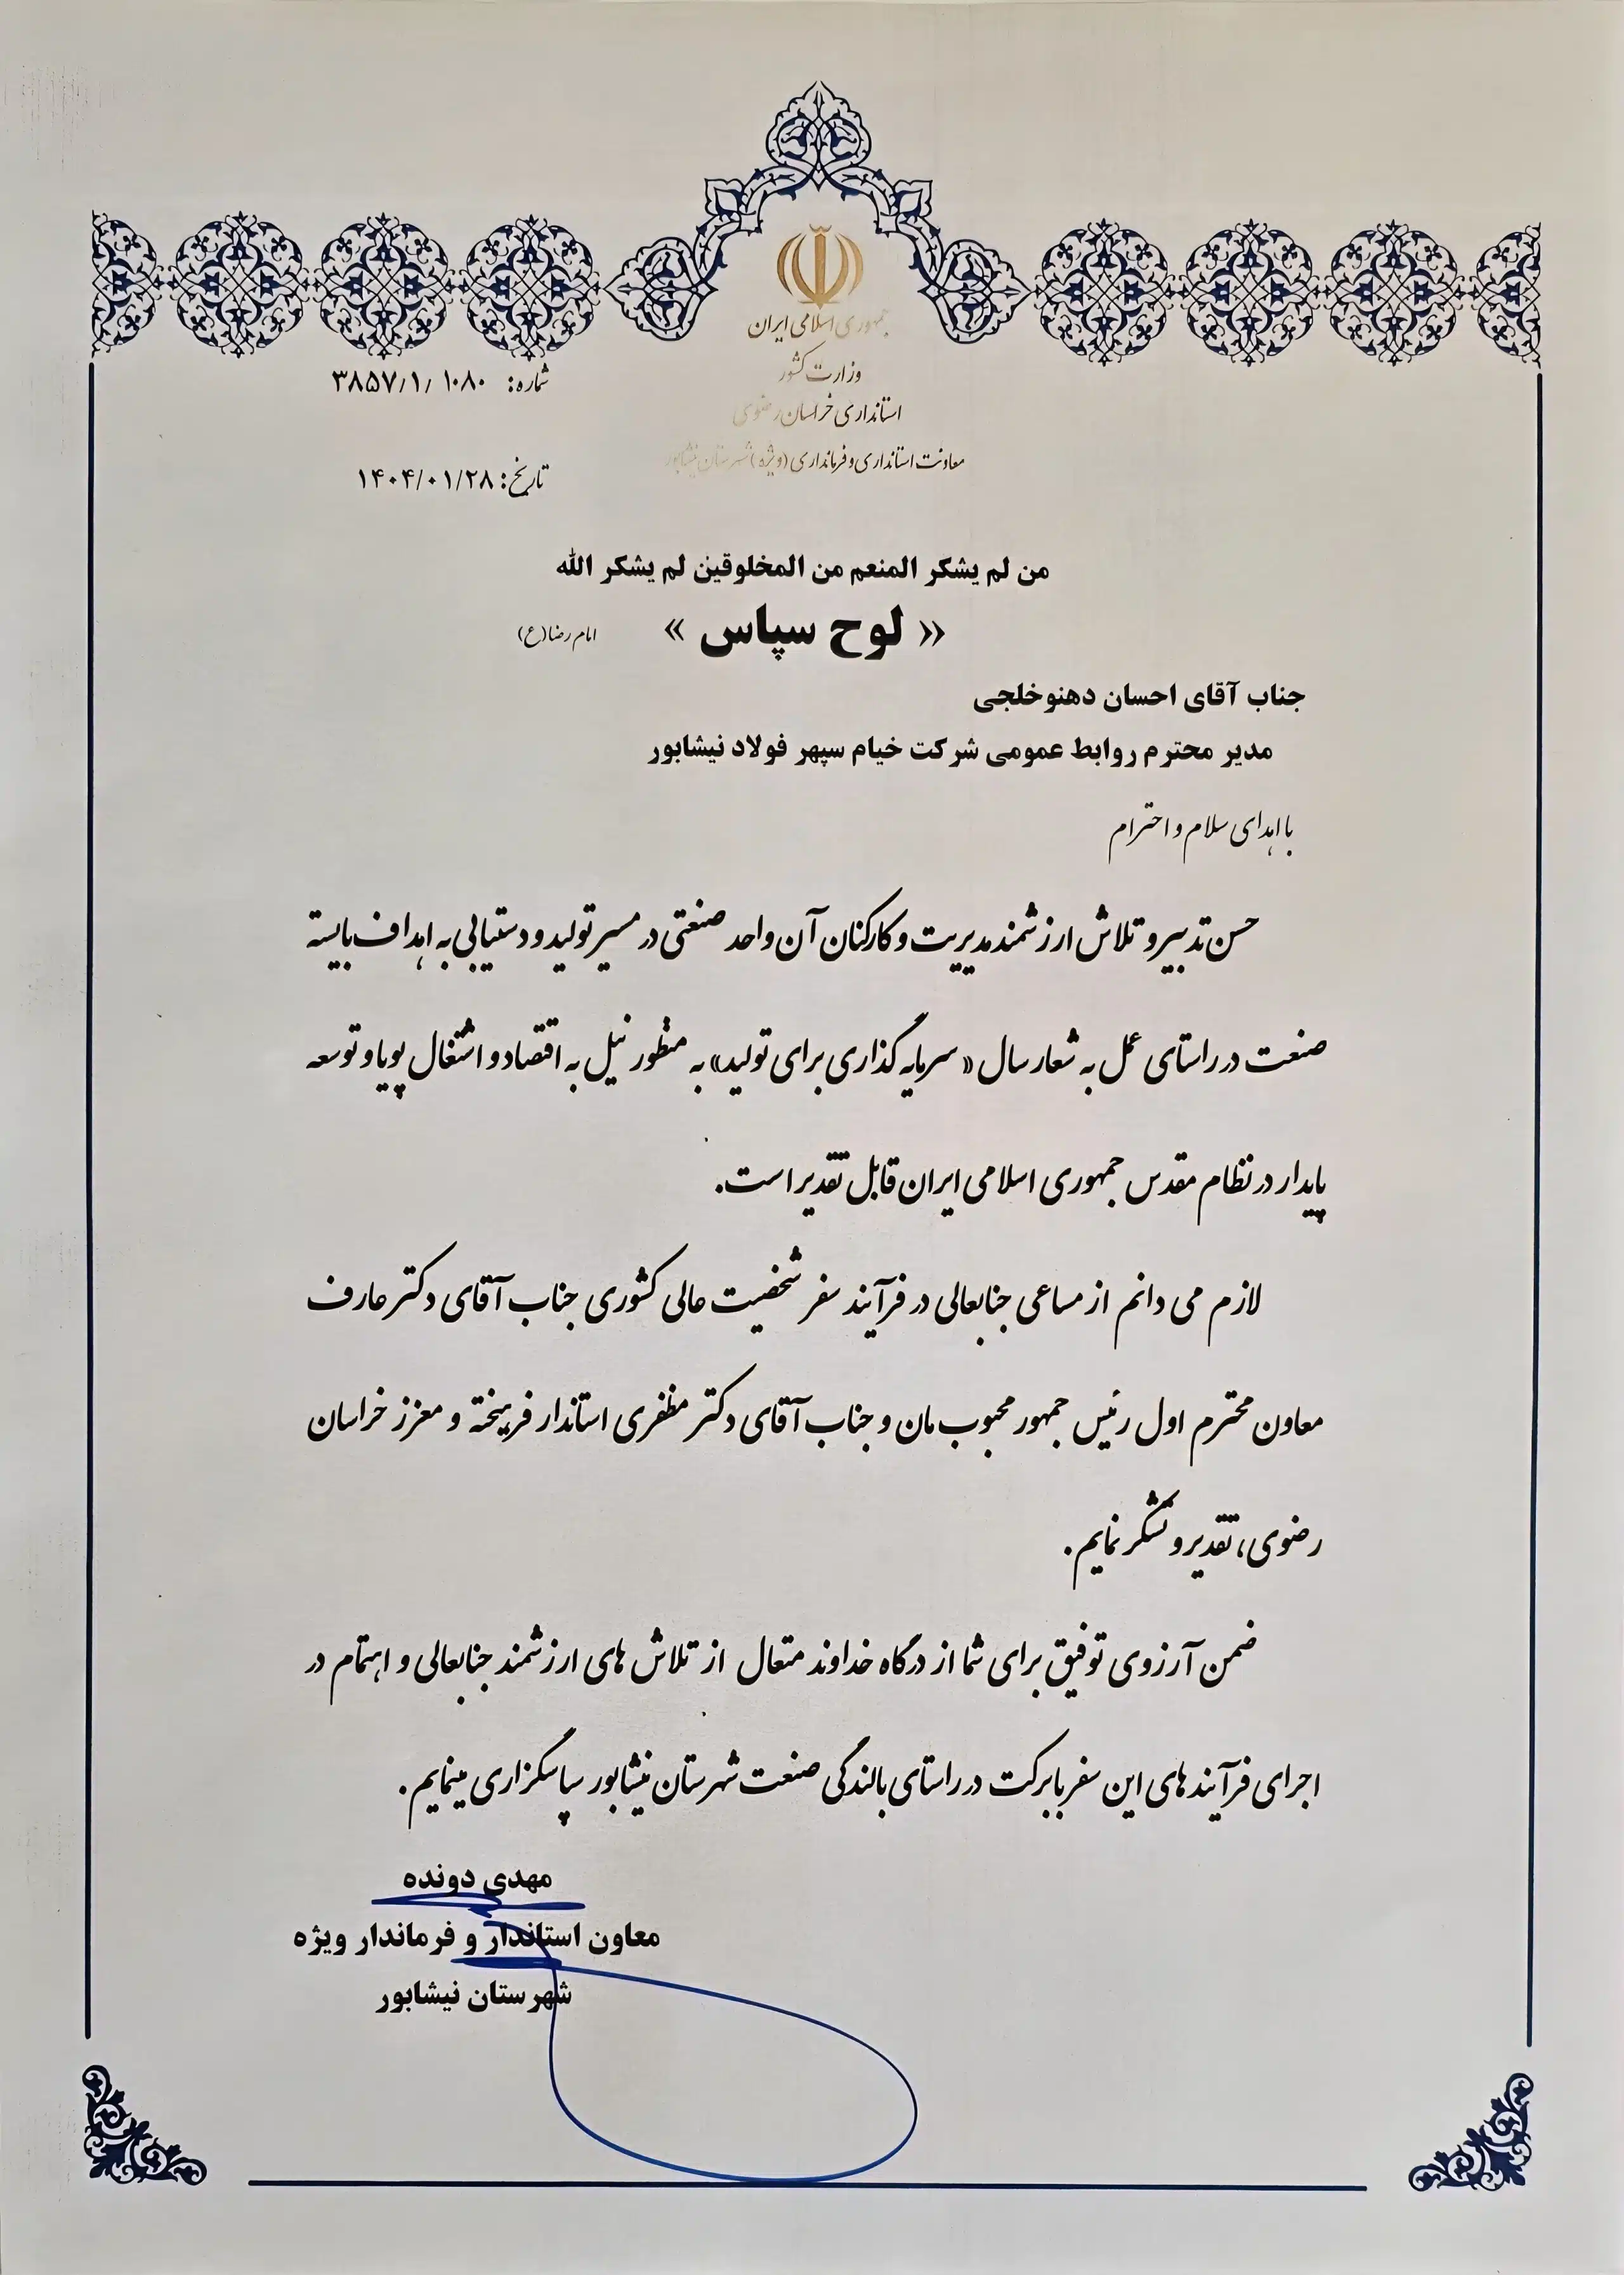 جمهوری اسلامی ایران
وزارت کشور
استانداری خراسان رضوی
معاونت استانداری و فرمانداری (ویژه) شهرستان نیشابور
شماره: ۳۸۵۷/۱/ ۱۰۸۰
تاریخ: ۱۴۰۴/۰۱/۲۸
من لم یشکر المنعم من المخلوقین لم یشکر الله
« لوح سپاس » امام رضا(ع)
جناب آقای احسان دهنوخلجی
مدیر محترم روابط عمومی شرکت خیام سپهر فولاد نیشابور
با اهدای سلام و احترام
حسن تدبیر و تلاش ارزشمند مدیریت و کارکنان آن واحد صنعتی در مسیر تولید و دستیابی به اهداف بایسته
صنعت در راستای عمل به شعار سال « سرمایه گذاری برای تولید» به منظور نیل به اقتصاد و اشتغال پویا و توسعه
پایدار در نظام مقدس جمهوری اسلامی ایران قابل تقدیر است.
لازم می دانم از مساعی جنابعالی در فرآیند سفر شخصیت عالی کشوری جناب آقای دکتر عارف
معاون محترم اول رئیس جمهور محبوب مان و جناب آقای دکتر مظفری استاندار فرهیخته و معزز خراسان
رضوی، تقدیر و تشکر نمایم.
ضمن آرزوی توفیق برای شما از درگاه خداوند متعال از تلاش های ارزشمند جنابعالی و اهتمام در
اجرای فرآیندهای این سفر بابرکت در راستای بالندگی صنعت شهرستان نیشابور سپاسگزاری مینمایم.
مهدی دونده
معاون استاندار و فرماندار ویژه
شهرستان نیشابور